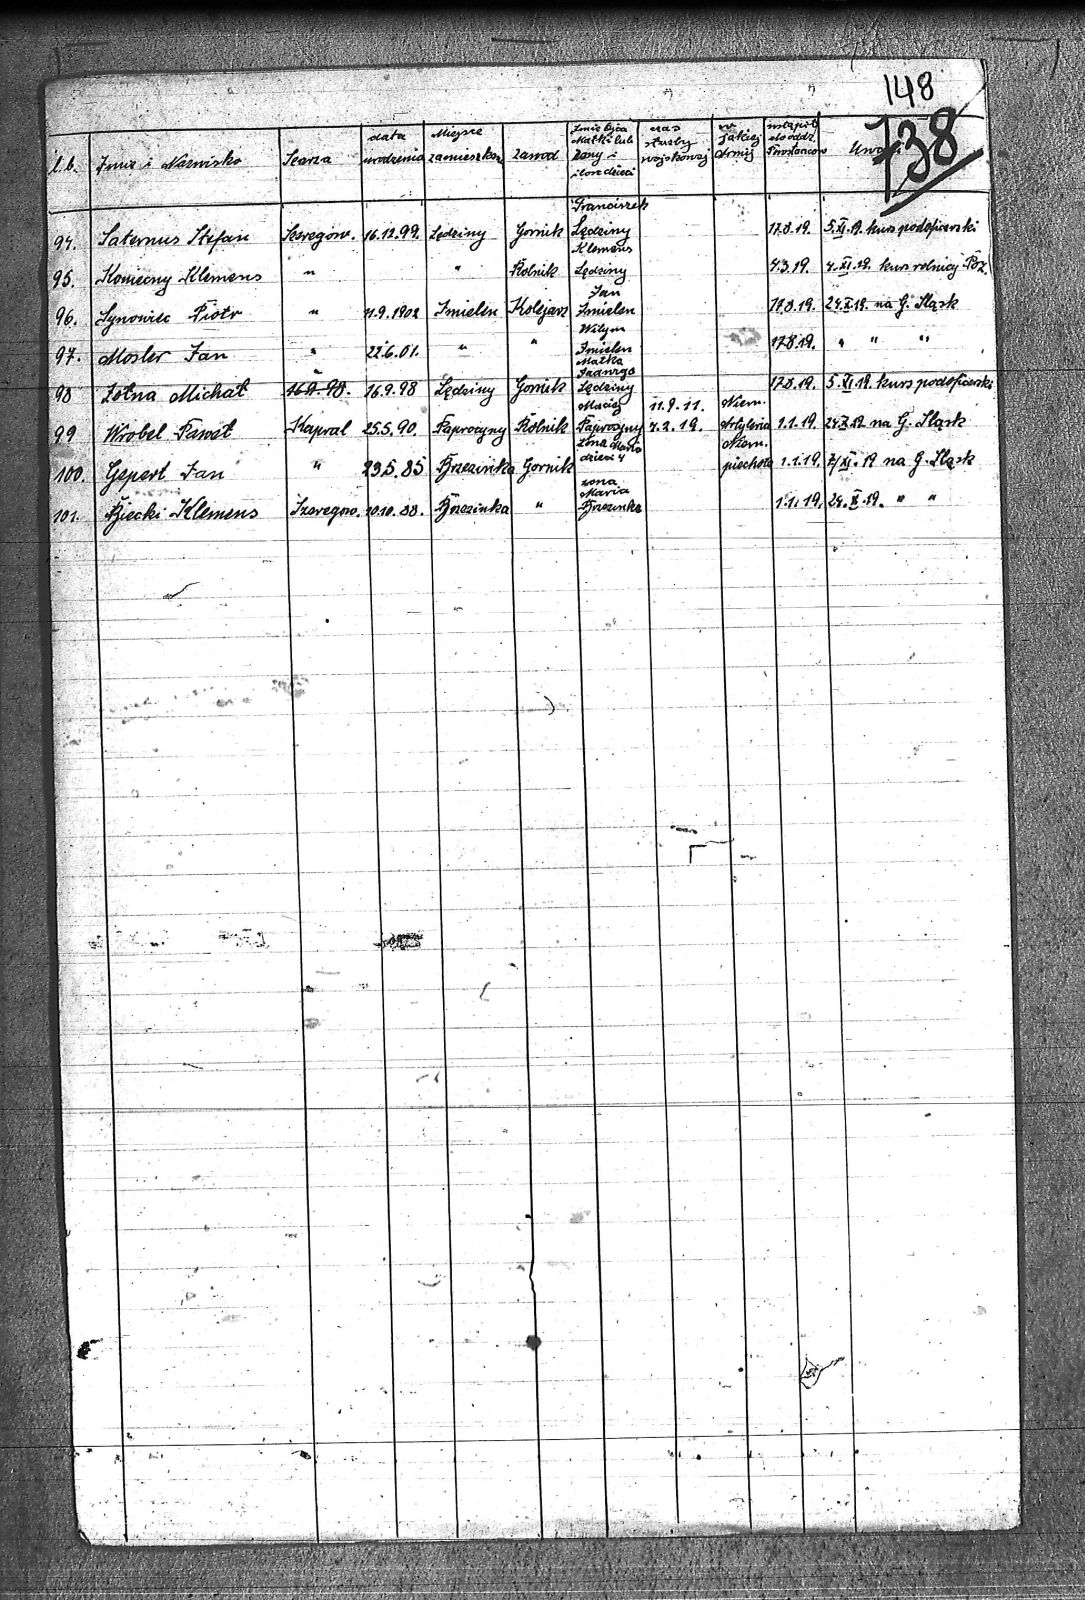 148
738
l.b. Imie i Nazwisko Szarża data urodzenia Miejsce zamieszkan. Zawod Imie Ojca Matki lub Zony i ilosc dzieci czas służby wojskowej w jakiej Armij wstąpił do oddz. Powstancow Uwagi
94. Saternus Stefan Szeregow. 16.12.99. Lędziny Gornik Franciszek Lędziny 17.8.19. 5.XI.19. kurs podoficerski
95. Konieczny Klemens " " Rolnik Klemens Lędziny 4.3.19. 4.XI.19. kurs rolniczy Poz.
96. Synowiec Piotr " 11.9.1902 Imielin Kolejarz Jan Imielin 17.8.19. 24.X.19. na G. Sląsk
97. Mosler Jan " 22.6.01. " " Wilym Imielin 17.8.19. " " "
98 Zotna Michał " 16.9.98. 16.9.98 Lędziny Gornik Matka Jadwiga Lędziny 17.8.19. 5.XI.19. kurs podoficerski
99 Wrobel Paweł Kapral 25.5.90. Paprocyny Rolnik Maciej Paprocyny 11.9.11. 4.2.19. Niem. Artyleria 1.1.19. 24.X.19. na G. Sląsk
100. Gepert Jan " 23.5.85 Brzezinka Gornik żona Maria dzieci 4 Niem. piechota 1.1.19. XI.19 na G. Sląsk
101. Biecki Klemens Szeregow. 10.10.88. Brzezinka " żona Maria Brzezinka 1.1.19. 24.X.19. " "